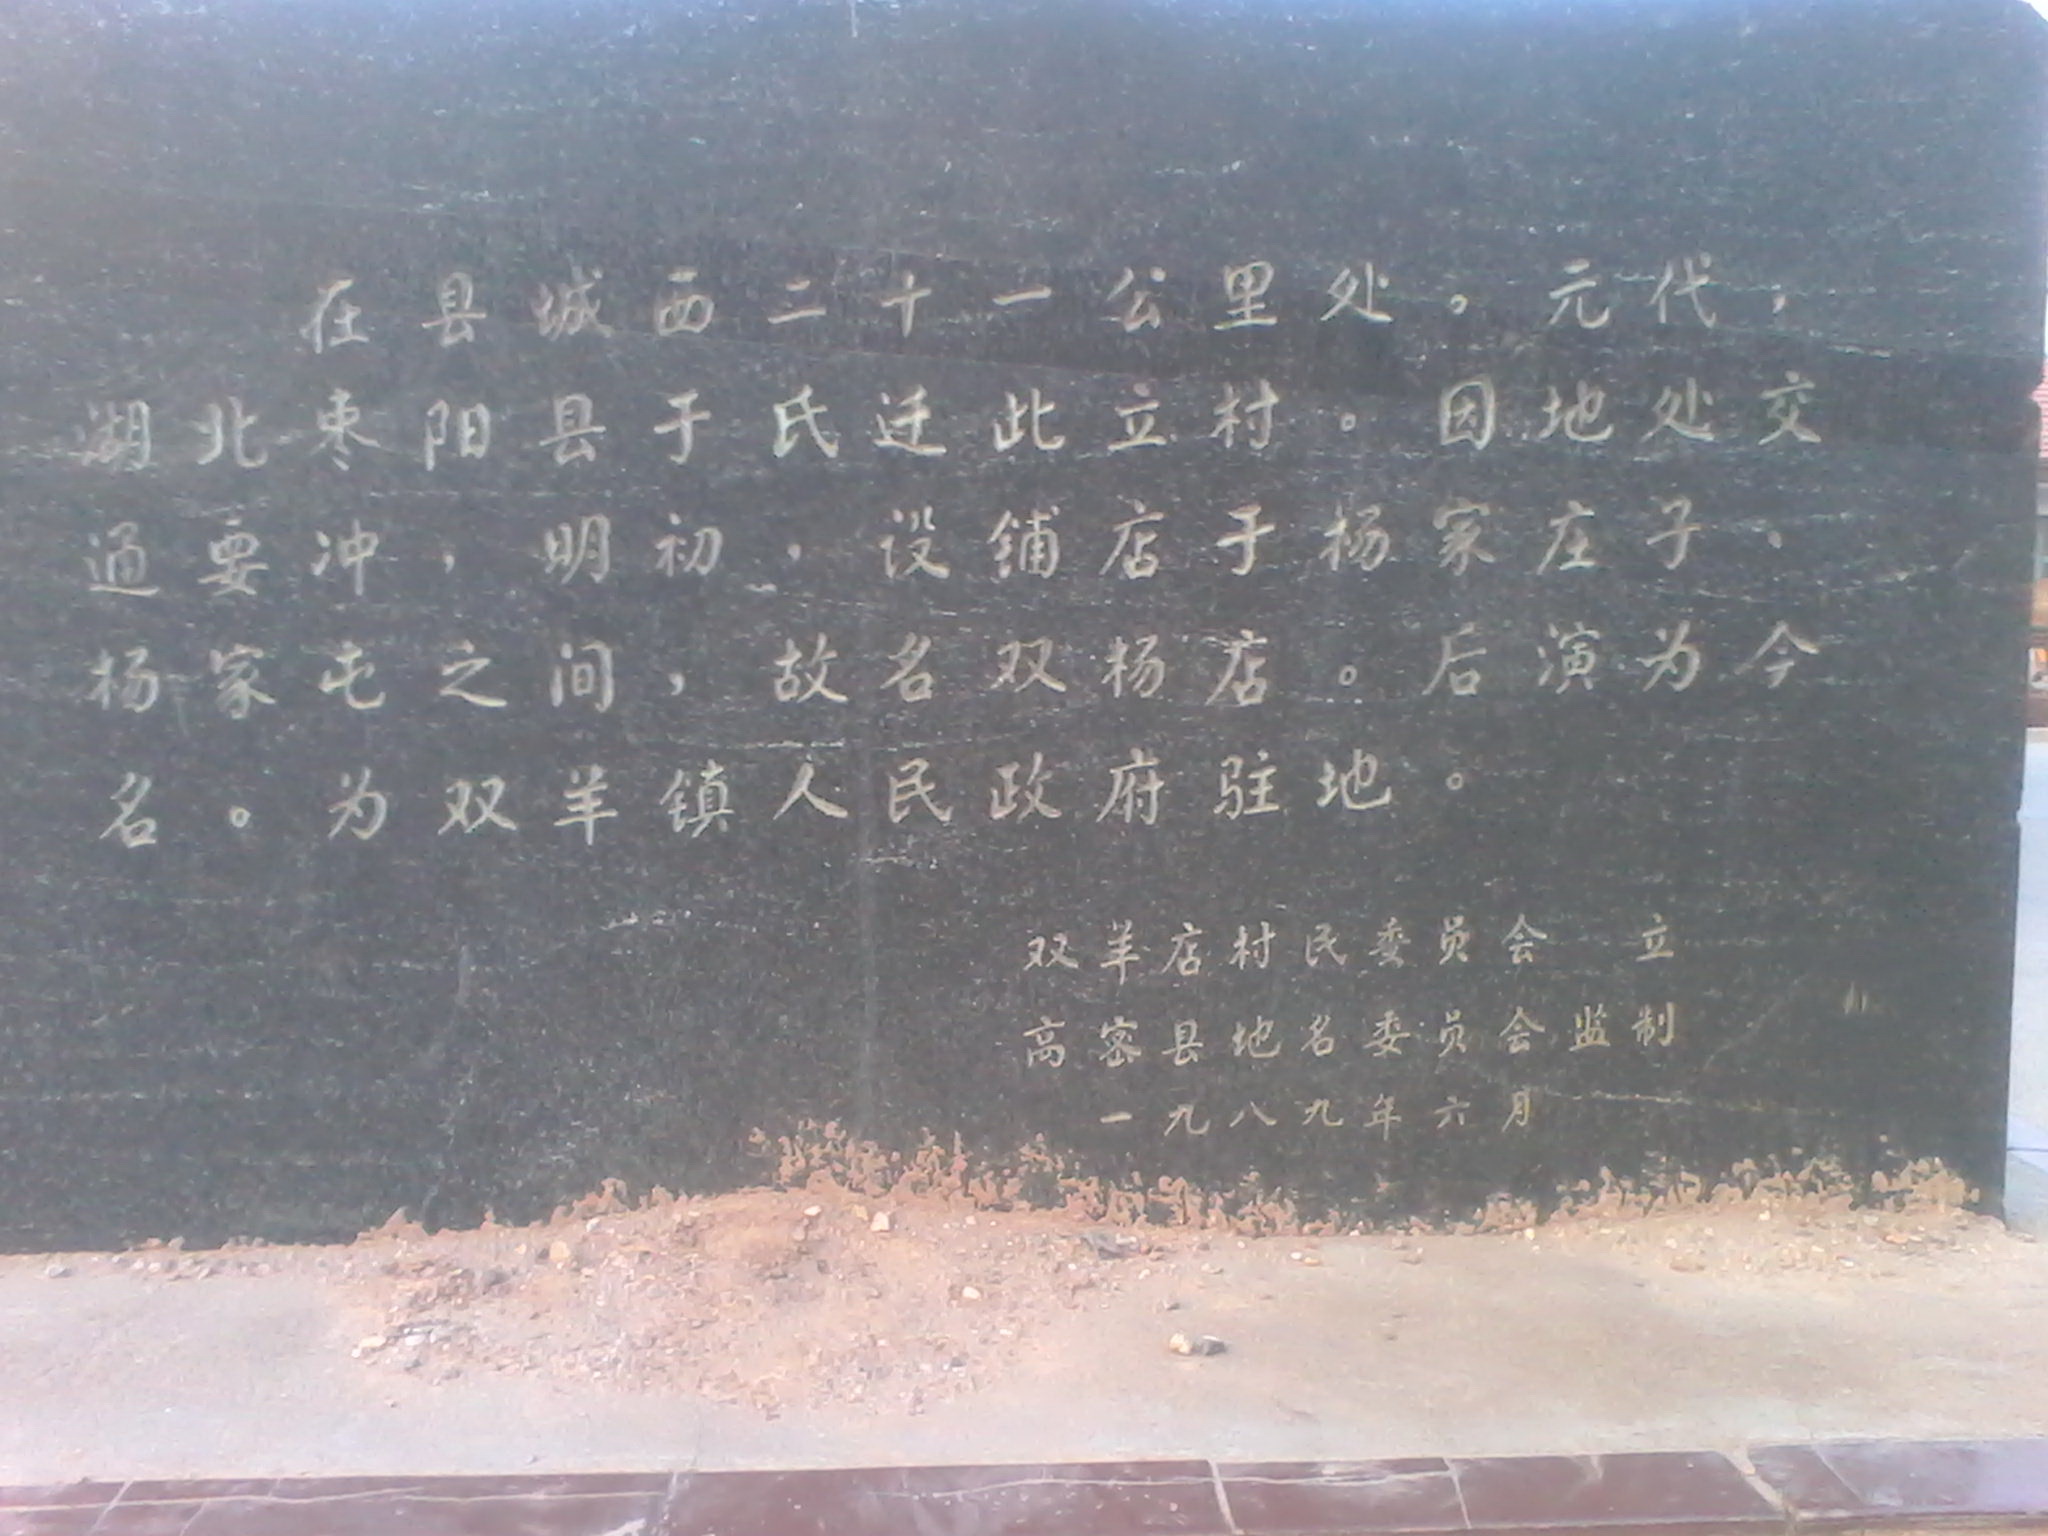 在县城西二十一公里处。元代，
湖北枣阳县于氏迁此立村。因地处交
通要冲，明初，设铺店于杨家庄子、
杨家屯之间，故名双杨店。后演为今
名。为双羊镇人民政府驻地。
双羊店村民委员会 立
高密县地名委员会监制
一九八九年六月